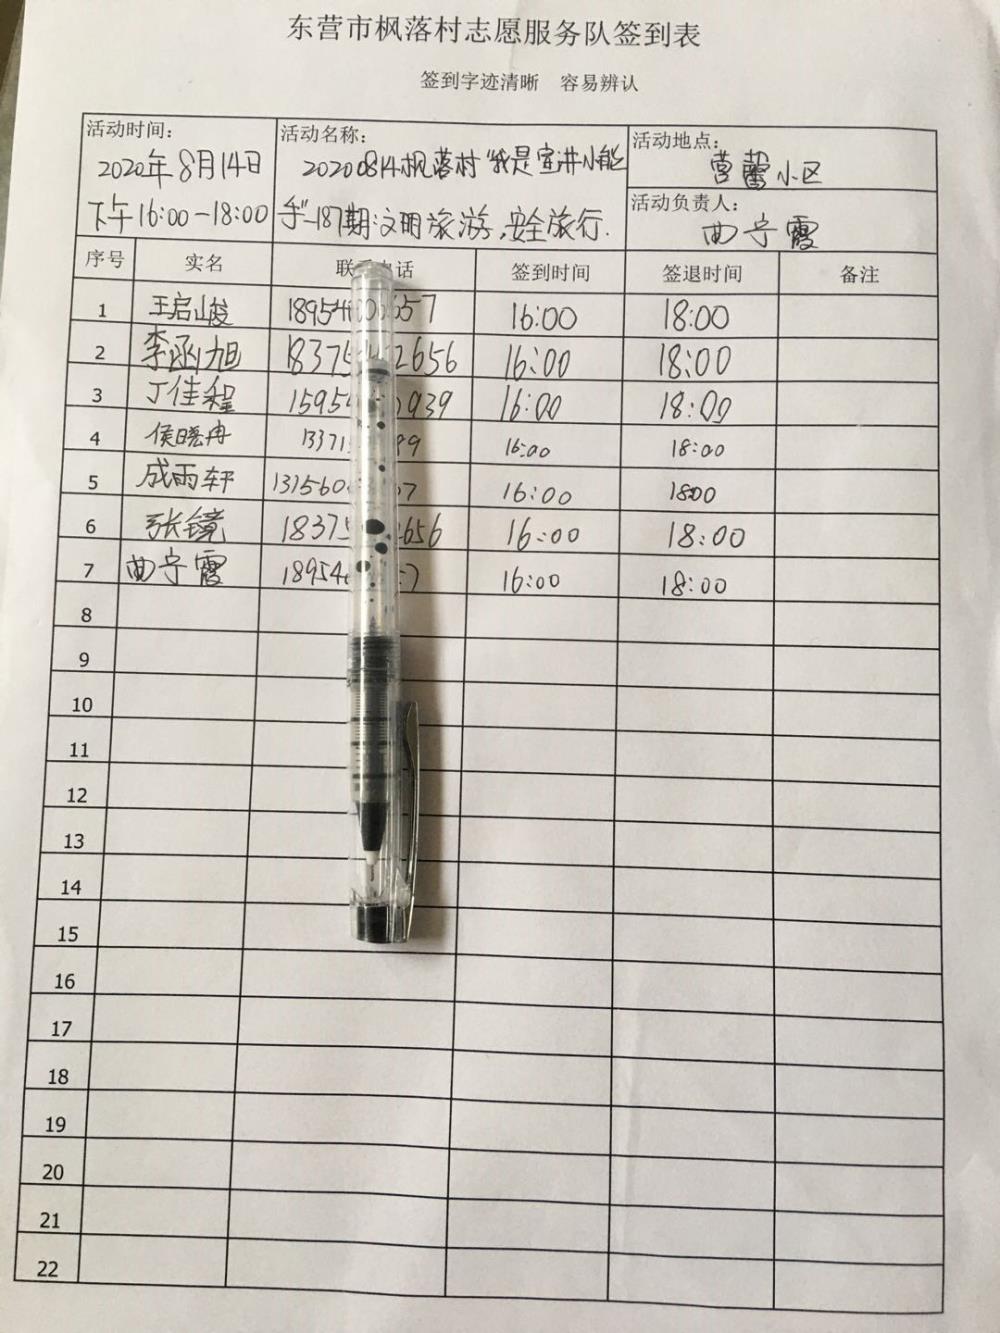 东营市枫落村志愿服务队签到表
签到字迹清晰 容易辨认
活动时间: 活动名称: 活动地点:
2020年8月14日 20200814枫落村"我是宣讲小能 营馨小区
下午16:00-18:00 手"-187期:文明旅游,安全旅行. 活动负责人:
曲宁霞
序号 实名 联 话 签到时间 签退时间 备注
1 王启峻 16:00 18:00
2 李函旭 16:00 18:00
3 丁佳程 16:00 18:00
4 侯晓冉 16:00 18:00
5 成雨轩 16:00 18:00
6 张镜 16:00 18:00
7 曲宁霞 16:00 18:00
8
9
10
11
12
13
14
15
16
17
18
19
20
21
22